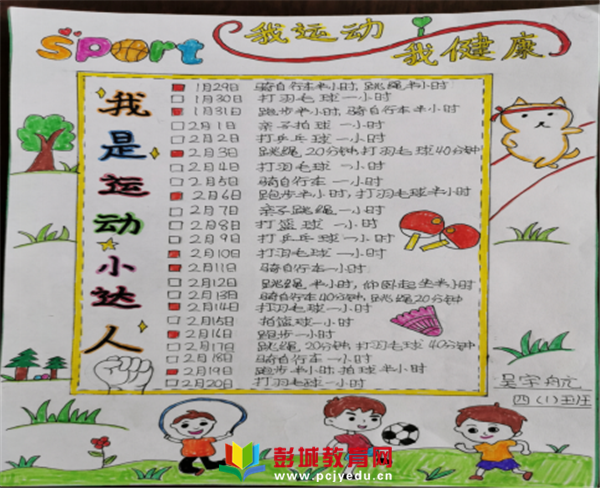 sport 我运动 我健康
我是运动小达人
1月29日 骑自行车半小时,跳绳半小时
1月30日 打羽毛球一小时
1月31日 跑步半小时,骑自行车半小时
2月1日 亲子拍球一小时
2月2日 打乒乓球一小时
2月3日 跳绳,20分钟,打羽毛球40分钟
2月4日 打羽毛球一小时
2月5日 骑自行车一小时
2月6日 跑步半小时,打羽毛球半小时
2月7日 亲子跳绳一小时
2月8日 打篮球一小时
2月9日 打乒乓球一小时
2月10日 打羽毛球一小时
2月11日 骑自行车一小时
2月12日 跳绳半小时,仰卧起坐半小时
2月13日 骑自行车40分钟,跳绳20分钟
2月14日 打羽毛球一小时
2月15日 拍篮球一小时
2月16日 跑步一小时
2月17日 跳绳,20分钟 打羽毛球 40分钟
2月18日 骑自行车一小时
2月19日 跑步半小时 拍球半小时
2月20日 打羽毛球一小时
四(1)班
彭城教育网
www.pcjyedu.cn